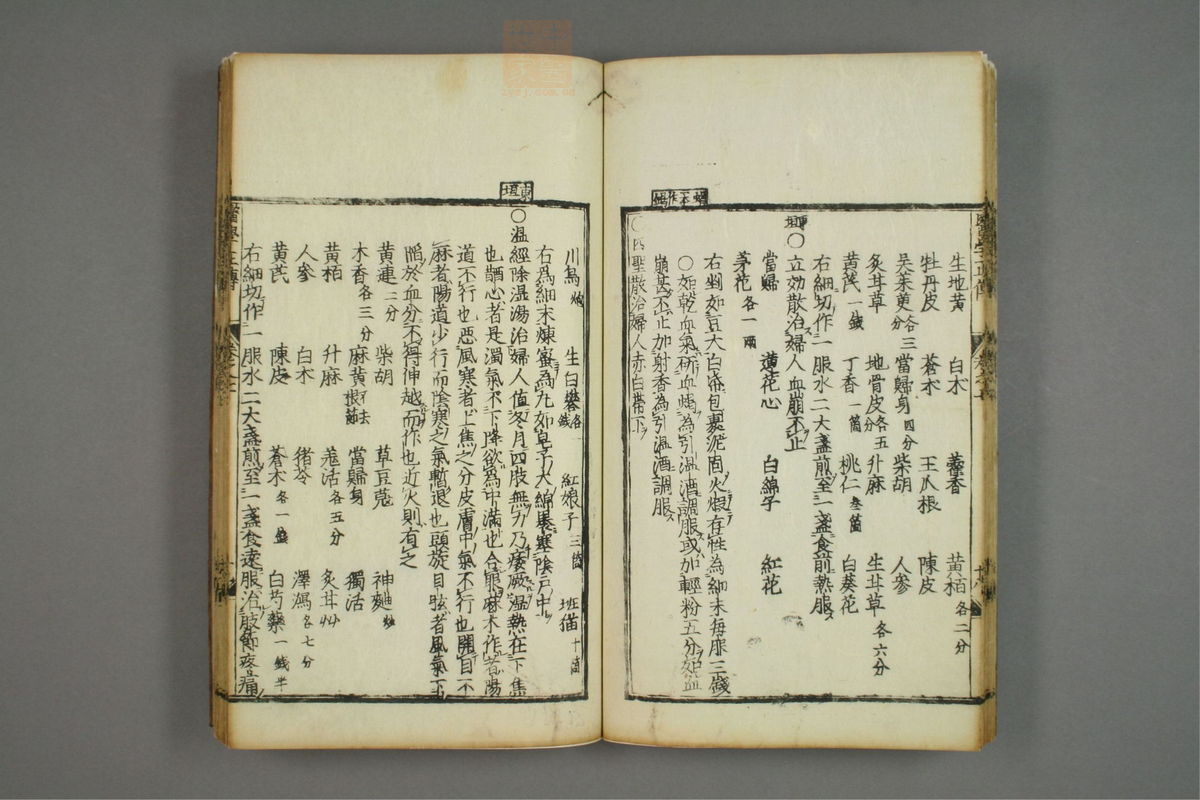 醫學正傳
生地黃 白朮 藿香 黃栢各二分
牡丹皮 蒼朮 王瓜根 陳皮
吳茱萸各三分 當歸身四分 柴胡 人參
炙甘草 地骨皮各五分 升麻 生甘草各六分
黃芪一錢 丁香一箇 桃仁叄箇 白葵花
右細切作一服水二大盞煎至一盞食前熱服
東垣
○立効散治婦人血崩不止
當歸 蓮花心 白綿子 紅花
茅花各一兩
右剉如豆大白帋包裹泥固火煅存性為細末每服三錢
○如乾血氣所血竭為引溫酒調服或加輕粉五分如血
崩甚不止加射香為引溫酒調服
○四聖散治婦人赤白帶下
川烏炮 生白礬各一錢 紅娘子三箇 班猫十箇
右為細末煉蜜為丸如皂子大綿裹塞陰戶中
東垣
○温經除湿湯治婦人值冬月四肢無力乃痿厥湿熱在下焦
也醋心者是濁氣不下降欲為中滿也合眼麻木作者陽
道不行也惡風寒者上焦之分皮膚中氣不行也開目不
麻者陽道少行而陰寒之氣暫退也頭旋目眩者風氣下
陷於血分不得伸越而作也近火則有之
黃連二分 柴胡 草豆蔻 神麯炒
木香各三分 麻黃去根節 當歸身 獨活
黃栢 升麻 羗活各五分 炙甘艸
人參 白朮 猪苓 澤瀉各七分
黃芪 陳皮 蒼朮各一錢 白芍藥一錢半
右細切作一服水二大盞煎至一盞食遠服治肢節疼痛
醫學正傳